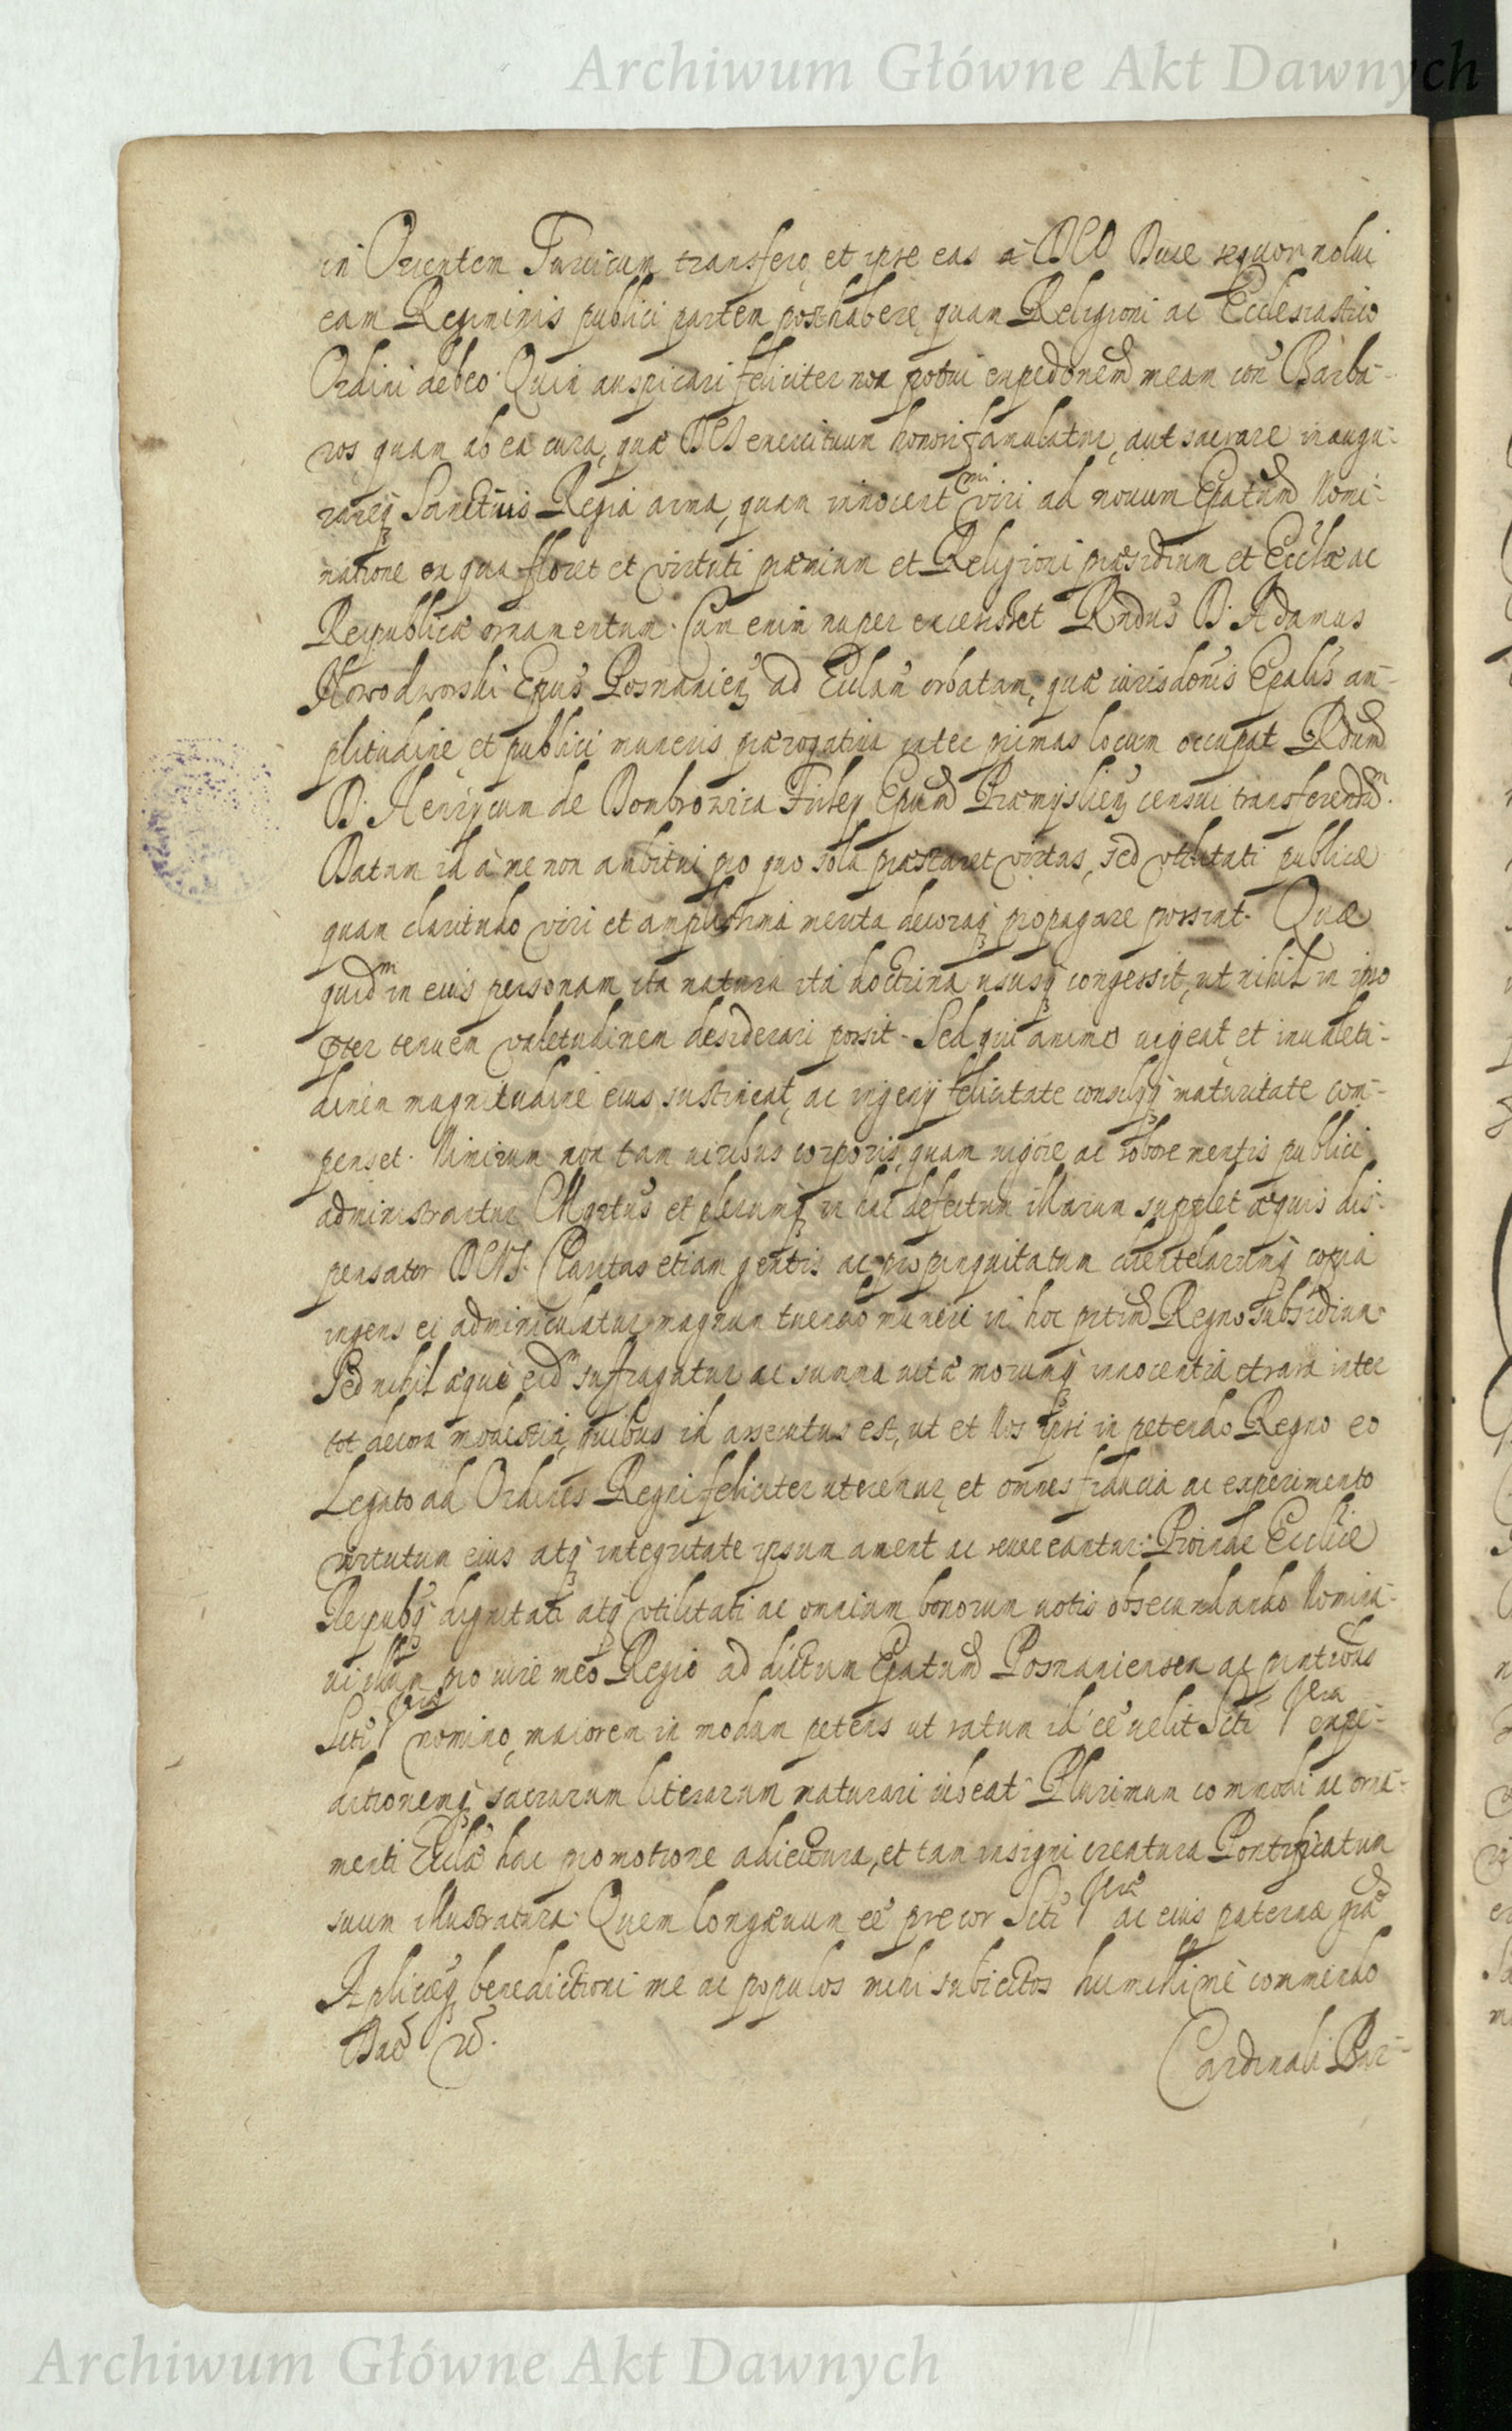 Archiwum Główne Akt Dawnych
in Orientem Turcicum transfero et ipse eas à DEO Duce sequor nolui
eam Regiminis publici partem posthabere, quam Religioni ac Ecclesiastico
Ordini debeo. Quia auspicari feliciter non potui expedonem meam con Barba-
ros quam ab ea cura, quæ DEI exercituum honori famulatur, aut sacrare inaugu-
rareq Sanctius Regia arma, quam innocent mi viri ad novum Epatum Nomi-
natione ex qua floret et virtuti præmium et Religioni præsidium et Eccliæ ac
Reipublicæ ornamentum. Cum enim nuper excessisset Rndus D. Adamus
Nowodworski Epus Posnanien ad Ecclam orbatam, quæ iurisdonis Epalis am-
plitudine et publici muneris prærogativa inter primas locum occupat Rdum
D. Henrycum de Dombrowica Firley Epum Præmyslien censui transferendum.
Datum id à me non ambitui pro quo sola præstaret virtus, sed utilitati publicæ
quam claritudo viri et amplissima merita decoraq propagare possint. Quæ
quidm in eius personam ita natura ita doctrina ususq congessit, ut nihil in ipso
pter tenuem valetudinem desiderari possit. Sed qui animo vigeat et invaletu-
dinem magnitudine eius sustineat, ac ingenij felicitate consilijq maturitate com-
penset. Nimirum non tam viribus corporis, quam vigore ac robore mentis publici
administrantur Mgrtus et plerumq in hac defectum illarum supplet æquus dis-
pensator DEUS. Claritas etiam gentis ac propinquitatum clientelarumq copia
ingens ei adminiculatur magnum tuendo muneri in hoc prtim Regno subsidium.
Sed nihil æquè eidm suffragatur ac summa vitæ morumq innocentia et rara inter
tot decora modestia, quibus id assecutus est, ut et Nos ipsi in petendo Regno eo
Legato ad Ordines Regni feliciter uteremur, et omnes fiducia ac experimento
virtutum eius atq integritate ipsum ament ac revereantur. Proinde Eccliæ
Reipubq dignitati atq utilitati ac omnium bonorum votis obsecundando Nomina-
vi illum pro iure meo Regio ad dictum Epatum Posnaniensem ac pntibus
Scti Vræ nomino, maiorem in modum petens ut ratum id eē velit Scti Vra expe-
ditionemq sacrarum literarum maturari iubeat. Plurimum commodi ac orna-
menti Ecclæ hac promotione adiectura, et tam insigni creatura Pontificatum
suum illustratura. Quem longævum eē precor Scti Vræ ac eius paternæ græ
Aplicæq benedictioni me ac populos mihi subiectos humillimè commendo
Dat
Cardinali Bar-
Archiwum Główne Akt Dawnych